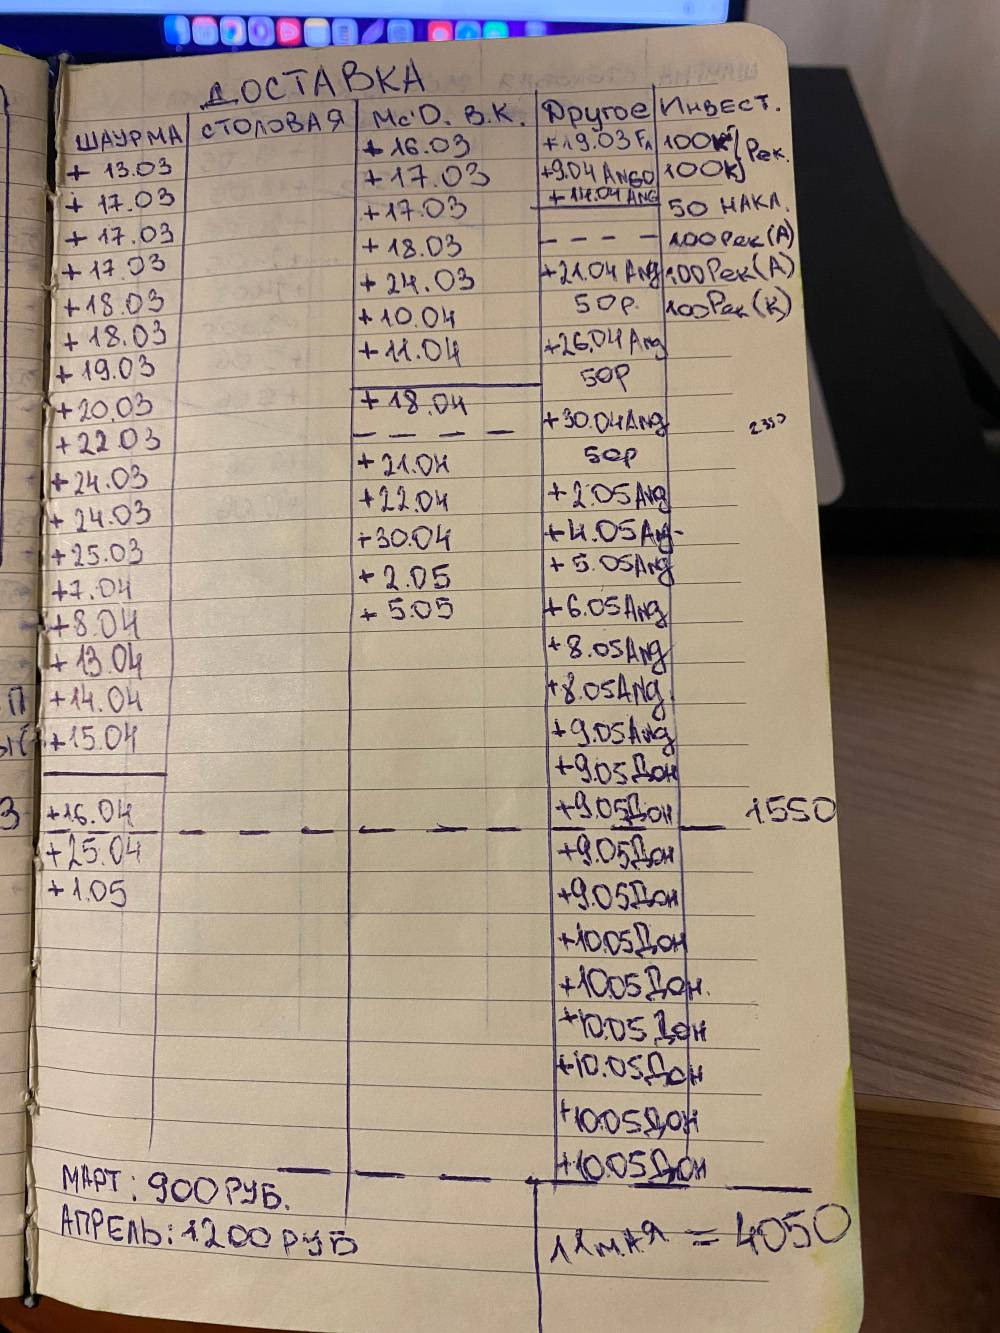 ДОСТАВКА
ШАУРМА СТОЛОВАЯ Мс.D. В.К. Другое Инвест.
+ 13.03
+ 17.03
+ 17.03
+ 17.03
+ 18.03
+ 18.03
+ 19.03
+20.03
+22.03
+24.03
+24.03
+25.03
+7.04
+8.04
+13.04
+14.04
+15.04
+16.04
+25.04
+1.05
+16.03
+17.03
+17.03
+18.03
+24.03
+10.04
+11.04
+18.04
+21.04
+22.04
+30.04
+2.05
+5.05
+19.03
+9.04 ANGO
+14.04 ANG
+21.04 Ang
50р.
+26.04 Ang
50р
+30.04 Ang
50р
+2.05 Ang
+4.05 Ang
+5.05 Ang
+6.05 Ang
+8.05 Ang
+8.05 Ang
+9.05 Ang
+9.05 Дон
+9.05 Дон
+9.05 Дон
+9.05 Дон
+10.05 Дон
+10.05 Дон.
+10.05 Дон
+10.05 Дон
+10.05 Дон
+10.05 Дон
100К } Рек.
100К
50 НАКЛ.
100 Рек (А)
100 Рек (А)
100 Рек (К)
1550
МАРТ: 900 РУБ.
АПРЕЛЬ: 1200 РУБ
11 мая = 4050